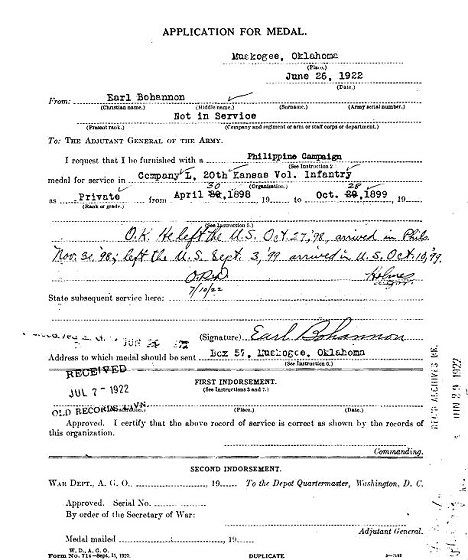 APPLICATION FOR MEDAL.
Muskogee, Oklahoma
(Place.)
June 26, 1922
(Date.)
From: Earl Bohannon
(Christian name.) (Middle name.) (Surname.) (Army serial number.)
Not in Service
(Present rank.) (Company and regiment or arm or staff corps or department.)
To: THE ADJUTANT GENERAL OF THE ARMY.
I request that I be furnished with a Philippine Campaign
(See Instruction 2.)
medal for service in Company L, 20th Kansas Vol. Infantry
(Organization.)
30 28
as Private from April 20, 1898, 19 to Oct. 1899, 19
(Rank or grade.)
(See Instruction 3.)
O.K. He left the U.S. Oct 27, '98, arrived in Phil
Nov. 30, '98; left the U.S. Sept. 3, '99 arrived in U.S. Oct. 10, '99.
7/10/22 Holmes
State subsequent service here:
(Signature) Earl Bohannon
Address to which medal should be sent Box 57, Muskogee, Oklahoma
(See Instruction 6.)
RECEIVED
JUL 7 - 1922
OLD RECORDS
FIRST INDORSEMENT.
(See Instructions 3 and 7.)
(Place.) (Date.)
Approved. I certify that the above record of service is correct as shown by the records of
this organization.
Commanding.
SECOND INDORSEMENT.
WAR DEPT., A. G. O. 19 To the Depot Quartermaster, Washington, D. C.
Approved. Serial No.
By order of the Secretary of War:
Adjutant General.
Medal mailed , 19
W. D., A. G. O.
Form No. 714—Sept. 15, 1920.
DUPLICATE
JUN 29 1922